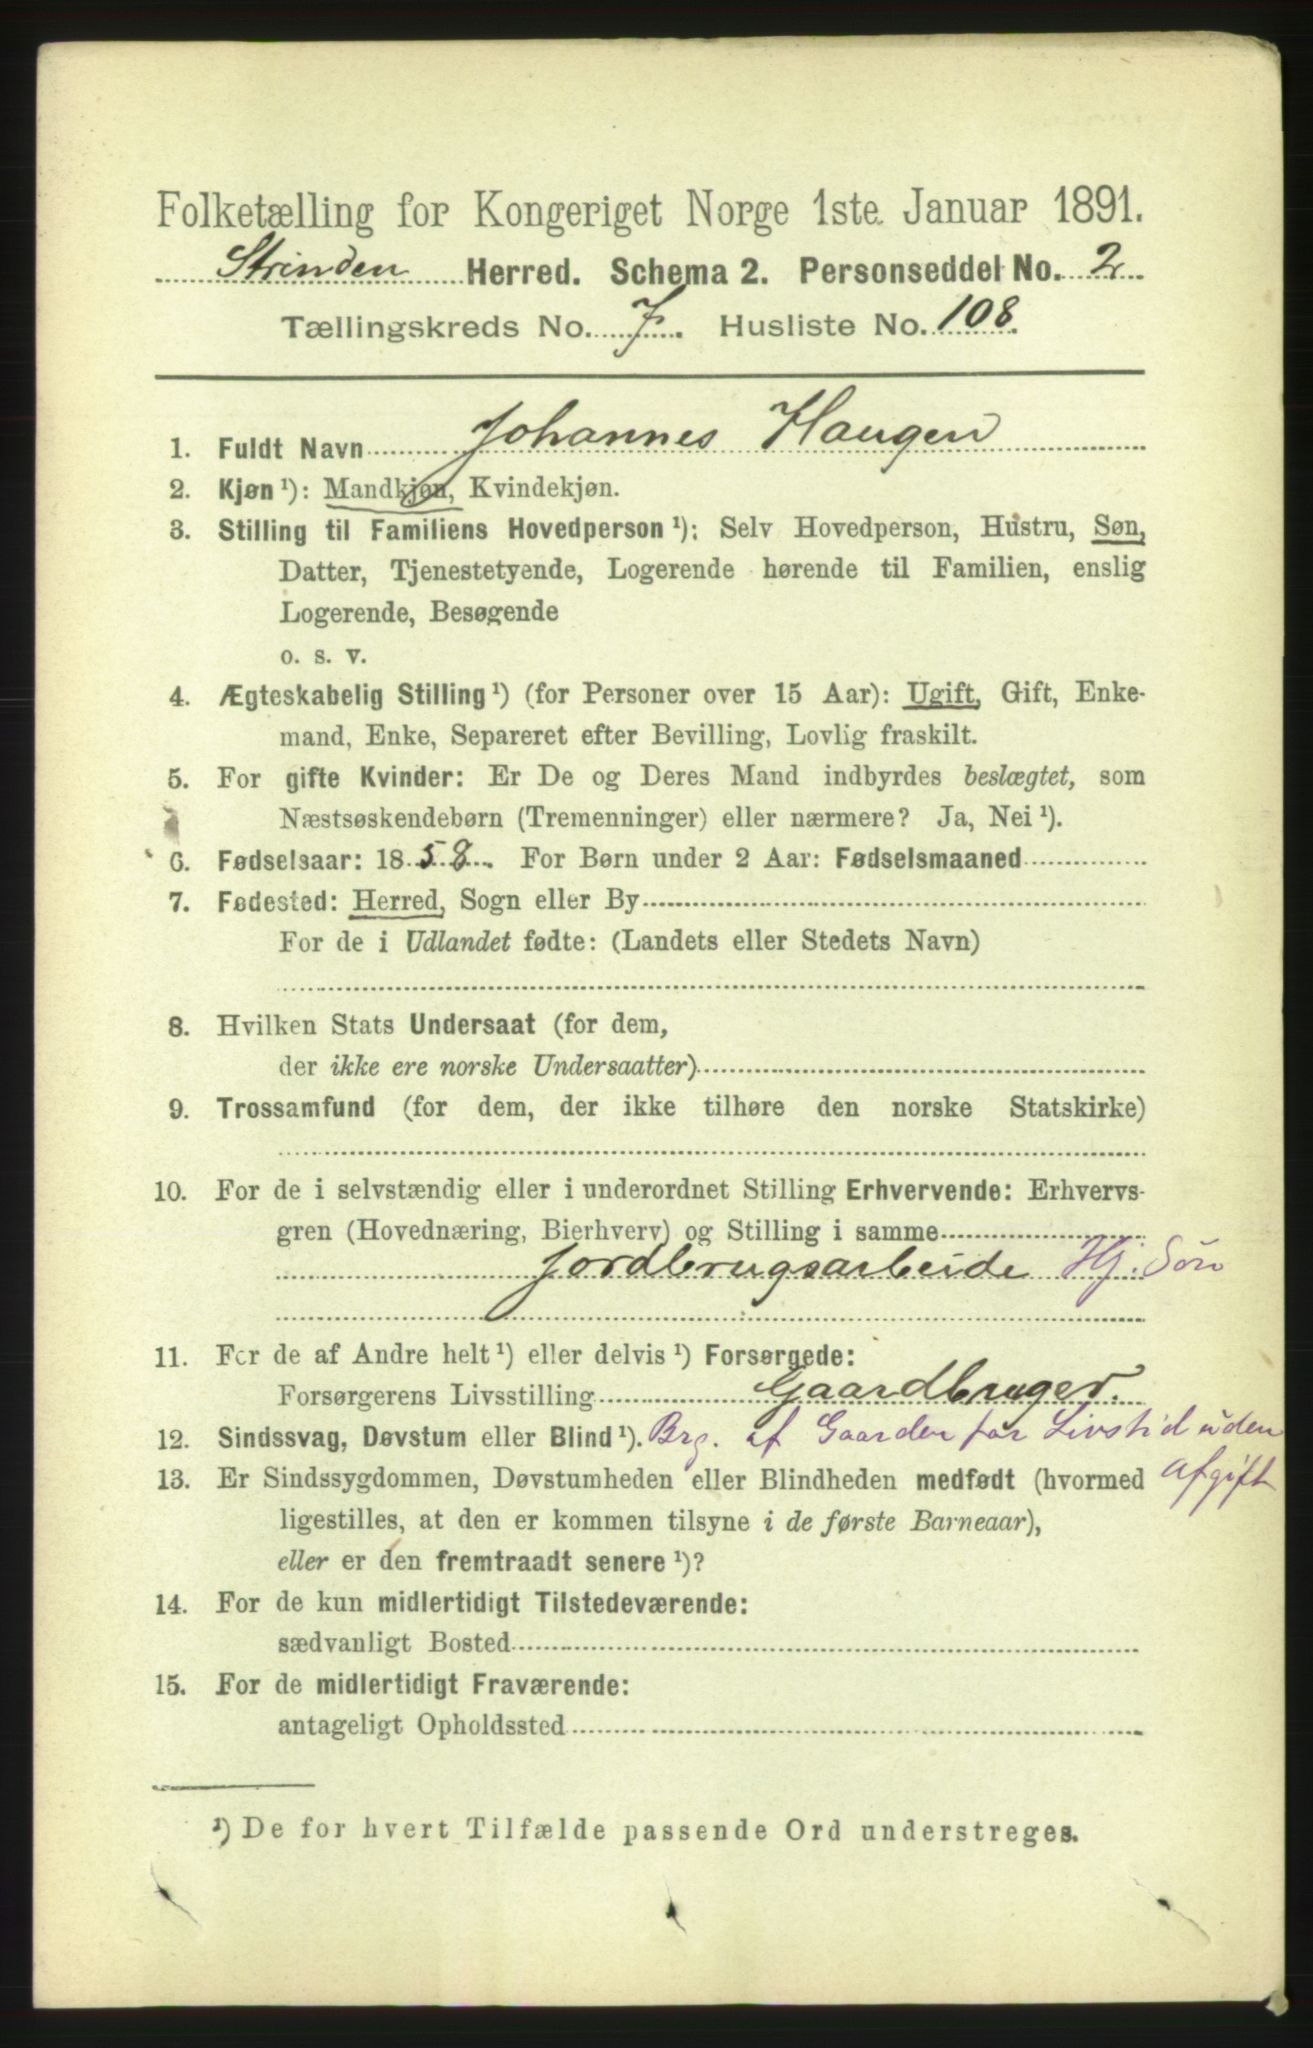 Folketælling for Kongeriget Norge 1ste Januar 1891.
Strinden Herred. Schema 2. Personseddel No. 2
Tællingskreds No. 7. Husliste No. 108.
1. Fuldt Navn Johannes Haugen
2. Kjøn ¹): Mandkjøn, Kvindekjøn.
3. Stilling til Familiens Hovedperson ¹): Selv Hovedperson, Hustru, Søn,
Datter, Tjenestetyende, Logerende hørende til Familien, enslig
Logerende, Besøgende
o. s. v.
4. Ægteskabelig Stilling ¹) (for Personer over 15 Aar): Ugift, Gift, Enke-
mand, Enke, Separeret efter Bevilling, Lovlig fraskilt.
5. For gifte Kvinder: Er De og Deres Mand indbyrdes beslægtet, som
Næstsøskendebørn (Tremenninger) eller nærmere? Ja, Nei ¹).
6. Fødselsaar: 1858. For Børn under 2 Aar: Fødselsmaaned
7. Fødested: Herred, Sogn eller By
For de i Udlandet fødte: (Landets eller Stedets Navn)
8. Hvilken Stats Undersaat (for dem,
der ikke ere norske Undersaatter)
9. Trossamfund (for dem, der ikke tilhøre den norske Statskirke)
10. For de i selvstændig eller i underordnet Stilling Erhvervende: Erhvervs-
gren (Hovednæring, Bierhverv) og Stilling i samme
Jordbrugsarbeide Hj. Søn
11. For de af Andre helt ¹) eller delvis ¹) Forsørgede:
Forsørgerens Livsstilling Gaardbruger.
12. Sindssvag, Døvstum eller Blind ¹). Brg. af Gaarden for Livstid uden
13. Er Sindssygdommen, Døvstumheden eller Blindheden medfødt (hvormed Afgift
ligestilles, at den er kommen tilsyne i de første Barneaar),
eller er den fremtraadt senere ¹)?
14. For de kun midlertidigt Tilstedeværende:
sædvanligt Bosted
15. For de midlertidigt Fraværende:
antageligt Opholdssted
¹) De for hvert Tilfælde passende Ord understreges.